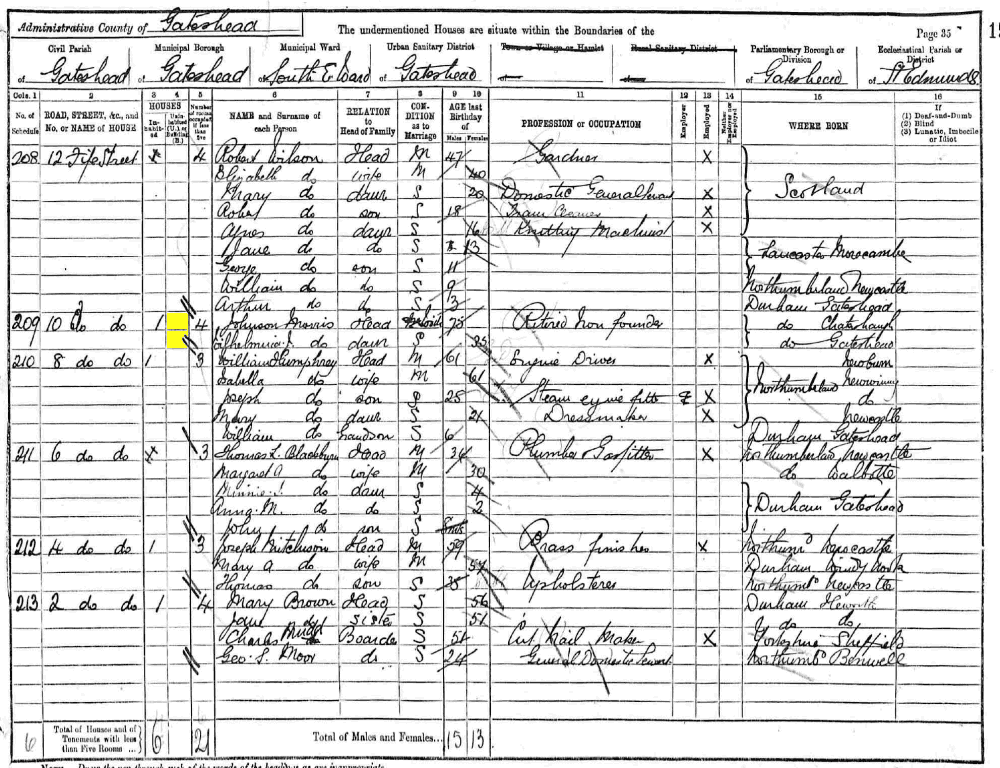 Administrative County of Gateshead
The undermentioned Houses are situate within the Boundaries of the
Page 35
Civil Parish
of Gateshead
Municipal Borough
of Gateshead
Municipal Ward
of South E Ward
Urban Sanitary District
of Gateshead
Town or Village or Hamlet
of
Rural Sanitary District
of
Parliamentary Borough or Division
of Gateshead
Ecclesiastical Parish or District
of St Edmunds
Cols. 1 2 3 4 5 6 7 8 9 10 11 12 13 14 15 16
No. of Schedule
ROAD, STREET, &c., and No. or NAME of HOUSE
HOUSES
Inhabited
Uninhabited (U.) or Building (B.)
Number of rooms occupied if less than five
NAME and Surname of each Person
RELATION to Head of Family
CONDITION as to Marriage
AGE last Birthday of
Males
Females
PROFESSION or OCCUPATION
Employer
Employed
Neither Employer nor Employed
WHERE BORN
If
(1) Deaf-and-Dumb
(2) Blind
(3) Lunatic, Imbecile or Idiot
208 12 Fife Street X 4 Robert Wilson Head M 47 Gardner X
Elizabeth do wife M 40
Mary do daur S 20 Domestic General X Scotland
Robert do son S 18 X
Agnes do daur S 16 Knitting Machinist X
Jane do do S 13 Lancaster Morecambe
George do son S 11
William do do S 9 Northumberland Newcastle
Arthur do do S 3 Durham Gateshead
209 10 do do 1 4 Johnson Morris Head 75 Retired Iron founder do
do daur S 35 do Gateshead
210 8 do do 1 3 William Humphrey Head M 61 Engine Driver X Newburn
Isabella do wife M 61 Northumberland
Joseph do son S 28 Steam engine fitter X do
Mary do daur S 21 Dressmaker X Newcastle
William do Grandson S 6 Durham Gateshead
211 6 do do X 3 Thomas L. Blackburn Head M 34 Plumber Gasfitter X Northumberland Newcastle
Margaret A do wife M 30 do Walbottle
Minnie J. do daur S 4
Anna M. do do S 2 Durham Gateshead
John do son S
212 4 do do 1 3 Joseph Mitchison Head M 59 Brass finisher X Northumd Newcastle
Mary A do wife M 57 Durham Windy Nook
Thomas do son S 38 Upholsterer Northumd Newcastle
213 2 do do 1 4 Mary Brown Head S 56 Durham Heworth
Jane do sister S 51 do do
Charles Mudd Boarder S 54 Cut Nail Maker X Yorkshire Sheffield
Geo. S. Moor do S 24 General Domestic Servant Northumd Benwell
6 Total of Houses and of Tenements with less than Five Rooms ... 6 21
Total of Males and Females... 15 13